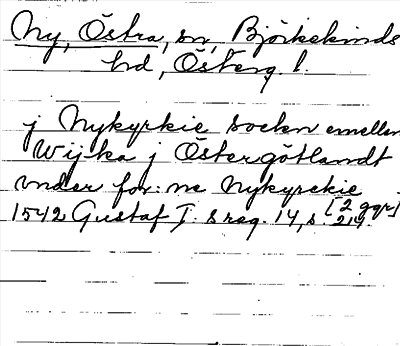 Ny, Östra, sn, Björkekinds
hd, Österg. l.
j Nykyrkie socken emellen
Wijka j Östergötlandt
vnder for:ne Nykyrckie
1542 Gustaf I:s reg. 14, s. 219. [2 ggr]